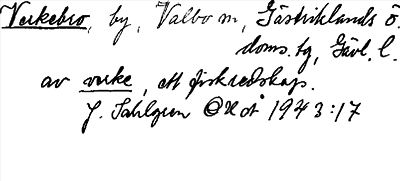 Verkebro, by, Valbo sn, Gästriklands ö.
doms. tg, Gävl. l.
av virke, ett fiskredskap.
J. Sahlgren i NoB 1943:17